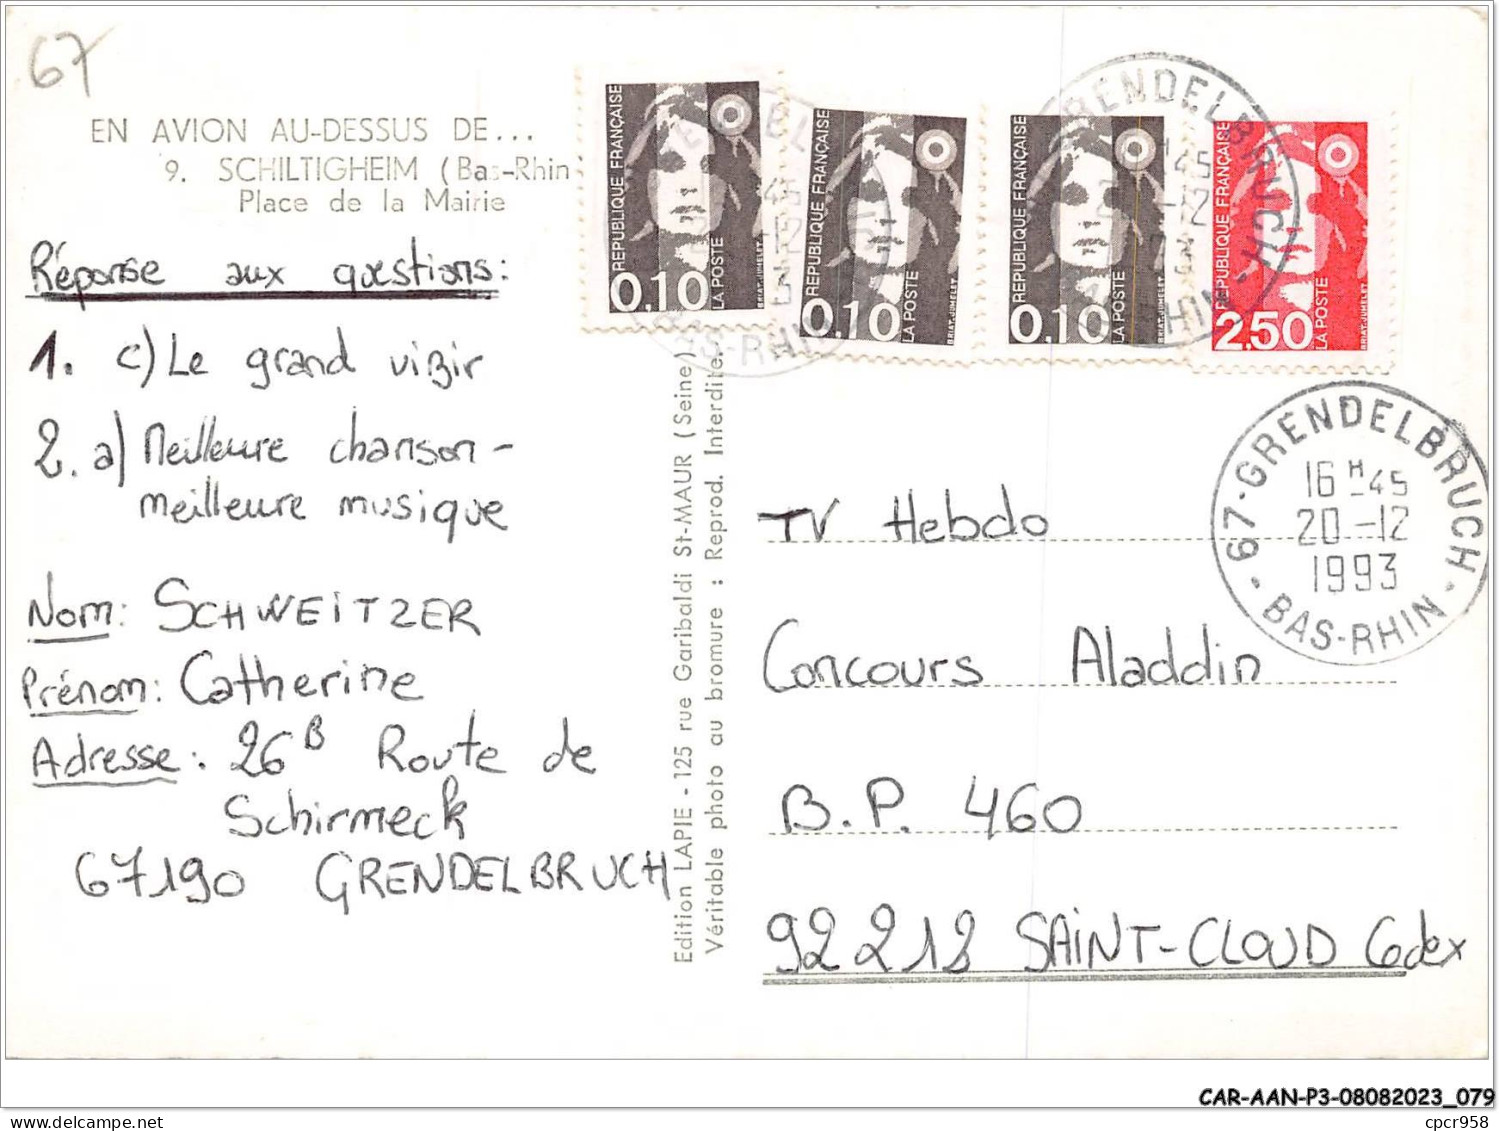 67
EN AVION AU-DESSUS DE...
9. SCHILTIGHEIM (Bas-Rhin
Place de la Mairie
Réponse aux questions:
1. c) Le grand vizir
2. a) Meilleure chanson -
meilleure musique
Nom: SCHWEITZER
Prénom: Catherine
Adresse: 26B Route de
Schirmeck
67190 GRENDELBRUCH
Edition LAPIE - 125 rue Garibaldi St-MAUR (Seine)
Véritable photo au bromure : Reprod. Interdite.
REPUBLIQUE FRANÇAISE
0,10
LA POSTE
BRIAT-JUMELET
REPUBLIQUE FRANÇAISE
0,10
LA POSTE
BRIAT-JUMELET
REPUBLIQUE FRANÇAISE
0,10
LA POSTE
BRIAT-JUMELET
REPUBLIQUE FRANÇAISE
2,50
LA POSTE
BRIAT-JUMELET
67-GRENDELBRUCH
16H-45
20-12
1993
BAS-RHIN
TV Hebdo
Concours Aladdin
B.P. 460
92213 SAINT-CLOUD Cedex
CAR-AAN-P3-08082023_079
cpcr958